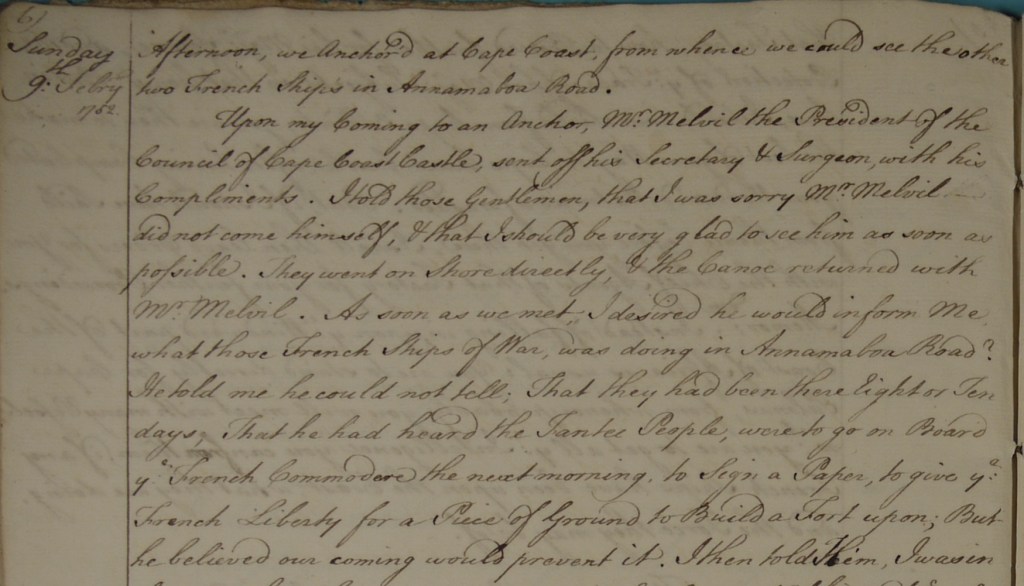 6)
Sunday
9th Febry
1752.
Afternoon, we Anchor'd at Cape Coast, from whence we could see the other
two French Ships in Annamaboa Road.
Upon my Coming to an Anchor, Mr. Melvil the President of the
Council of Cape Coast Castle, sent off his Secretary & Surgeon, with his
Compliments. I told those Gentlemen, that I was sorry Mr. Melvil
did not come himself, & that I should be very glad to see him as soon as
possible. They went on Shore directly, & the Canoe returned with
Mr. Melvil. As soon as we met, I desired he would inform Me
what those French Ships of War, was doing in Annamaboa Road?
He told me he could not tell; That they had been there Eight or Ten
days; That he had heard the Fantee People, were to go on Board
ye. French Commodore the next morning, to Sign a Paper, to give ye.
French Liberty for a Piece of Ground to Build a Fort upon; But
he believed our coming would prevent it. I then told Him, I was in